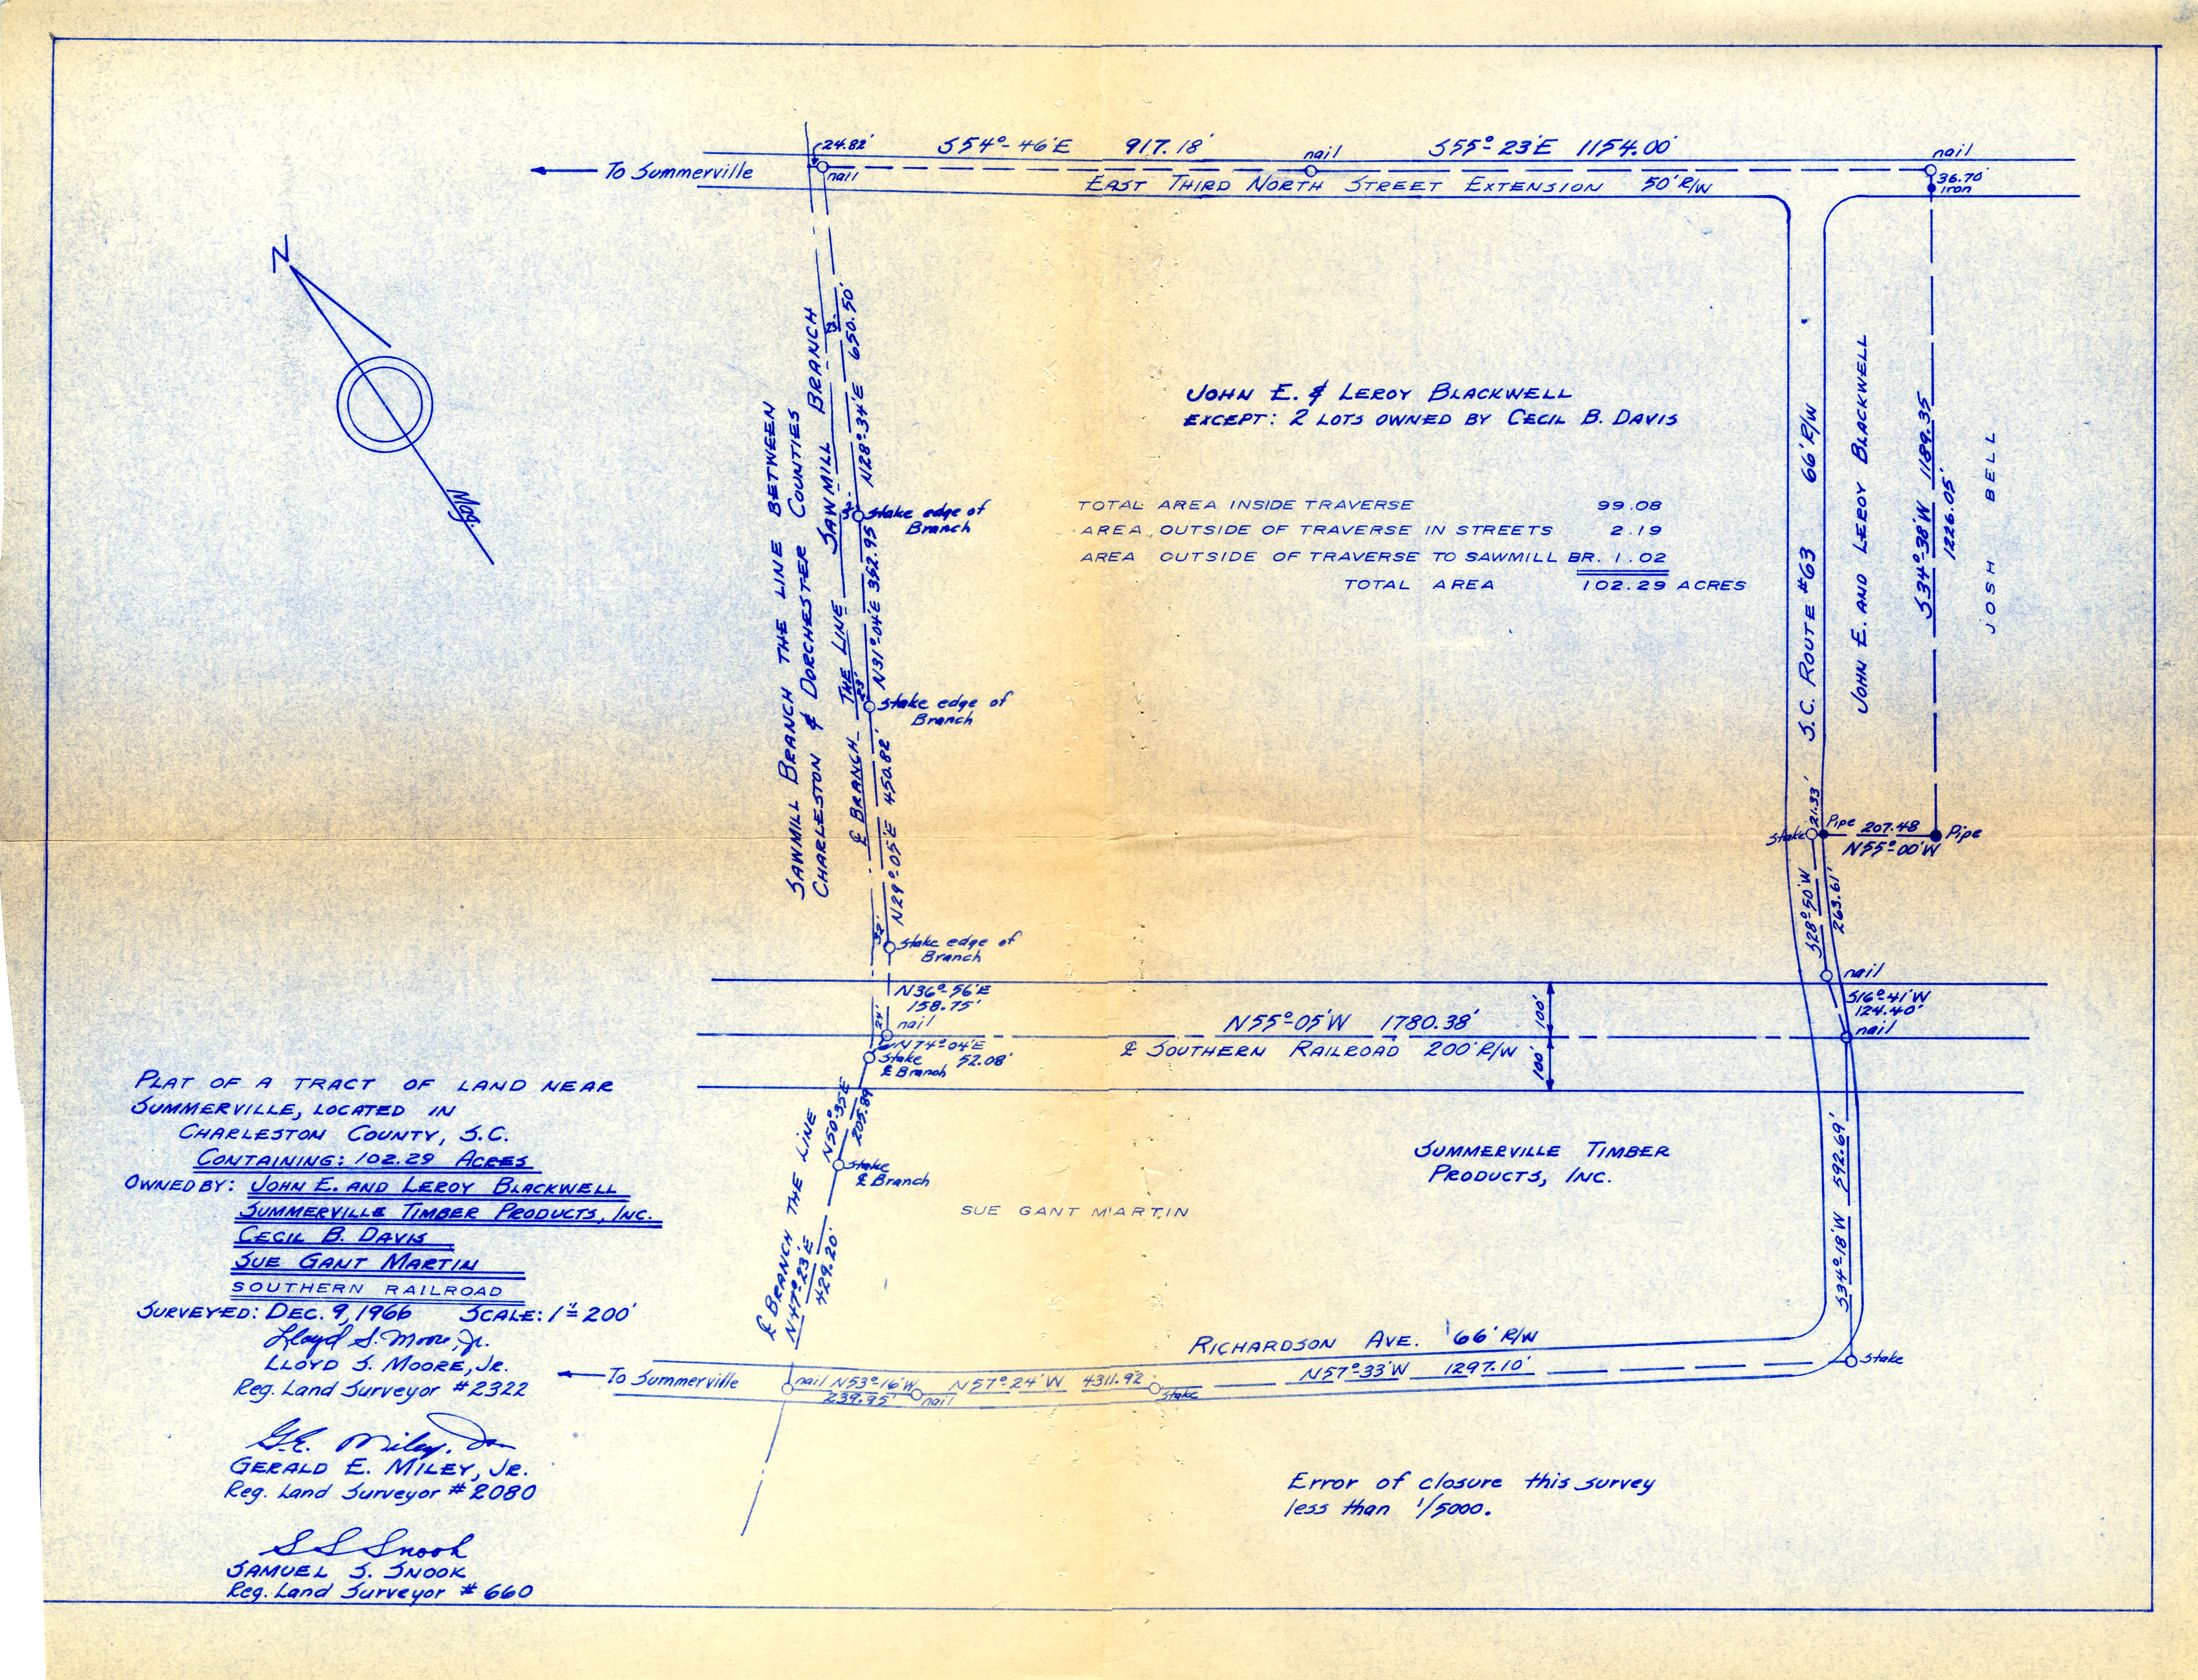 24.82'
S54°-46'E 917.18'
nail
S55°-23'E 1154.00'
nail
To Summerville
nail
EAST THIRD NORTH STREET EXTENSION 50' R/W
36.70'
iron
N
Mag.
SAWMILL BRANCH THE LINE BETWEEN
CHARLESTON & DORCHESTER COUNTIES
℄ BRANCH THE LINE SAWMILL BRANCH
N28°-34'E 650.50'
Stake edge of
Branch
N31°-04'E 352.95
23'
Stake edge of
Branch
N29°-05'E 450.82'
32'
Stake edge of
Branch
JOHN E. & LEROY BLACKWELL
EXCEPT: 2 LOTS OWNED BY CECIL B. DAVIS
TOTAL AREA INSIDE TRAVERSE 99.08
AREA OUTSIDE OF TRAVERSE IN STREETS 2.19
AREA OUTSIDE OF TRAVERSE TO SAWMILL BR. 1.02
TOTAL AREA 102.29 ACRES
S.C. ROUTE #63 66' R/W
JOHN E. AND LEROY BLACKWELL
S34°-38'W 1189.35
1226.05'
JOSH BELL
21.33'
Stake
Pipe
207.48
N55°-00'W
Pipe
S28°-50'W
263.61'
nail
S16°-41'W
124.40'
nail
N36°-56'E
158.75'
24'
nail
N74°-04'E
52.08'
Stake
℄ Branch
N55°-05'W 1780.38'
℄ SOUTHERN RAILROAD 200' R/W
100'
100'
N50°-35'E
205.89
Stake
℄ Branch
℄ BRANCH THE LINE
N47°-23'E
429.20'
SUE GANT MARTIN
SUMMERVILLE TIMBER
PRODUCTS, INC.
S34°-18'W 592.69'
RICHARDSON AVE. 66' R/W
N57°-33'W 1297.10'
Stake
To Summerville
nail N53°-16'W
239.95'
nail
N57°-24'W 4311.92
Stake
PLAT OF A TRACT OF LAND NEAR
SUMMERVILLE, LOCATED IN
CHARLESTON COUNTY, S.C.
CONTAINING: 102.29 ACRES
OWNED BY: JOHN E. AND LEROY BLACKWELL
SUMMERVILLE TIMBER PRODUCTS, INC.
CECIL B. DAVIS
SUE GANT MARTIN
SOUTHERN RAILROAD
SURVEYED: DEC. 9, 1966 SCALE: 1"=200'
Lloyd S. Moore, Jr.
LLOYD S. MOORE, JR.
Reg. Land Surveyor #2322
G.E. Miley, Jr.
GERALD E. MILEY, JR.
Reg. Land Surveyor #2080
S S Snook
SAMUEL S. SNOOK
Reg. Land Surveyor #660
Error of closure this survey
less than 1/5000.